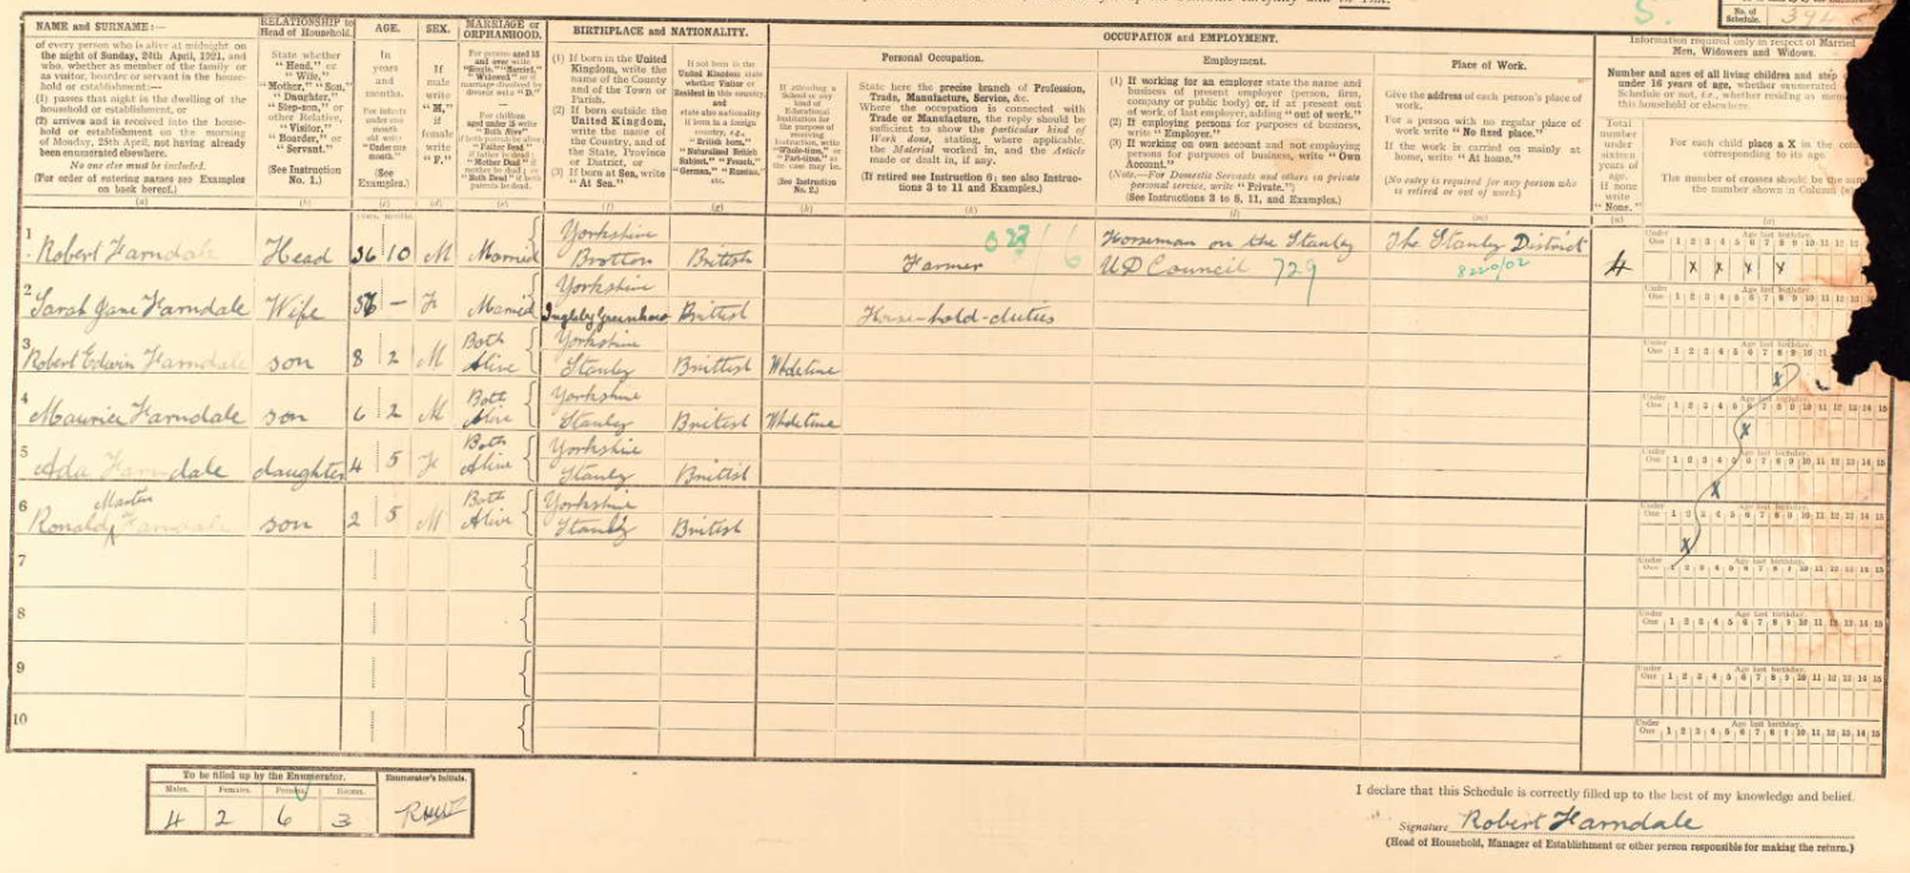 NAME and SURNAME:—
of every person who is alive at midnight on
the night of Sunday, 24th April, 1921, and
who, whether as member of the family or
as visitor, boarder or servant in the house-
hold or establishment:—
(1) passes that night in the dwelling of the
household or establishment, or
(2) arrives and is received into the house-
hold or establishment on the morning
of Monday, 25th April, not having already
been enumerated elsewhere.
No one else must be included.
(For order of entering names see Examples
on back hereof.)
(a)
RELATIONSHIP to
Head of Household.
State whether
"Head," or
"Wife,"
"Mother," "Son,"
"Daughter,"
"Step-son," or
other Relative,
"Visitor,"
"Boarder," or
"Servant."
(See Instruction
No. 1.)
(b)
AGE.
In
years
and
months.
For infants
under one
month
old write
"Under one
month."
(See
Examples.)
(c)
SEX.
If
male
write
"M,"
if
female
write
"F."
(d)
MARRIAGE or
ORPHANHOOD.
(e)
BIRTHPLACE and NATIONALITY.
(1) If born in the United
Kingdom, write the
name of the County
and of the Town or
Parish.
(2) If born outside the
United Kingdom,
write the name of
the Country, and of
the State, Province
or District, or
(3) If born at Sea, write
"At Sea."
(f)
(g)
OCCUPATION and EMPLOYMENT.
(h)
Personal Occupation.
State here the precise branch of Profession,
Trade, Manufacture, Service, &c.
Where the occupation is connected with
Trade or Manufacture, the reply should be
sufficient to show the particular kind of
Work done, stating, where applicable,
the Material worked in, and the Article
made or dealt in, if any.
(If retired see Instruction 6; see also Instruc-
tions 3 to 11 and Examples.)
(k)
Employment.
(1) If working for an employer state the name and
business of present employer (person, firm,
company or public body) or, if at present out
of work, of last employer, adding "out of work."
(2) If employing persons for purposes of business,
write "Employer."
(3) If working on own account and not employing
persons for purposes of business, write "Own
Account."
(Note.—For Domestic Servants and others in private
personal service, write "Private.")
(See Instructions 3 to 8, 11, and Examples.)
(l)
Place of Work.
Give the address of each person's place of
work.
For a person with no regular place of
work write "No fixed place."
If the work is carried on mainly at
home, write "At home."
(No entry is required for any person who
is retired or out of work.)
(m)
Information required only in respect of Married
Men, Widowers and Widows.
Number and ages of all living children and step
under 16 years of age, whether enumerated
Schedule or not, i.e., whether residing as mem
this household or elsewhere.
Total
number
under
sixteen
years of
age.
If none
write
"None."
(n)
For each child place a X in the
corresponding to its age
The number of crosses should be the
the number shown in Column
(o)
No. of
Schedule.
1 Robert Farndale Head 36 10 M Married Yorkshire Brotton British Farmer Horseman on the Stanley U D Council 729 The Stanley District 4 X X X X
2 Sarah Jane Farndale Wife 36 — F Married Yorkshire Ingleby Greenhow British House-hold-duties
3 Robert Edwin Farndale son 8 2 M Both Alive Yorkshire Stanley Brittish Wholetime X
4 Maurice Farndale son 6 2 M Both Alive Yorkshire Stanley British Wholetime X
5 Ada Farndale daughter 4 5 F Both Alive Yorkshire Stanley British X
6 Ronald Martin Farndale son 2 5 M Both Alive Yorkshire Stanley British X
7
8
9
10
To be filled up by the Enumerator.
Males. Females. Persons. Rooms.
4 2 6 3
Enumerator's Initials.
I declare that this Schedule is correctly filled up to the best of my knowledge and belief.
Signature Robert Farndale
(Head of Household, Manager of Establishment or other person responsible for making the return.)